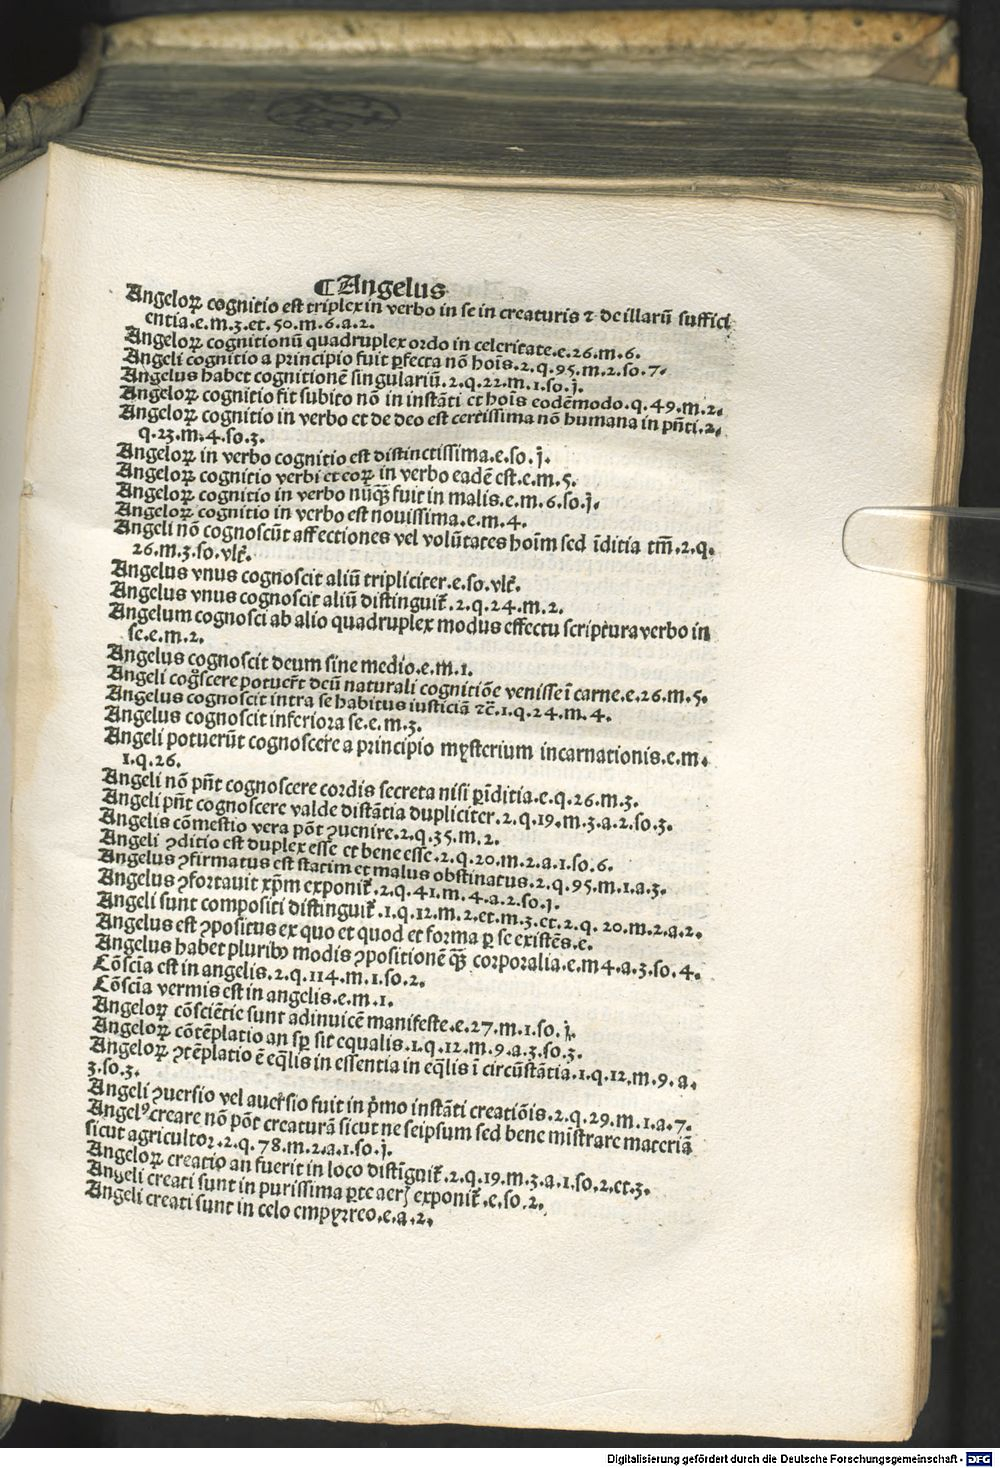 ¶Angelus
Angeloꝝ cognitio est triplex in verbo in se in creaturis ⁊ de illarū suffici
entia.e.m.3.et.50.m.6.a.2.
Angeloꝝ cognitionū quadruplex ordo in celeritate.e.26.m.6.
Angeli cognitio a principio fuit ꝑfecta nō hoīs.2.q.95.m.2.so.7.
Angelus habet cognitionē singulariū.2.q.22.m.1.so.j.
Angeloꝝ cognitio fit subito nō in instāti et hoīs eodēmodo.q.49.m.2.
Angeloꝝ cognitio in verbo et de deo est certissima nō humana in pn̄ti.2.
q.23.m.4.so.3.
Angeloꝝ in verbo cognitio est distinctissima.e.so.j.
Angeloꝝ cognitio verbi et eoꝝ in verbo eadē est.e.m.5.
Angeloꝝ cognitio in verbo nūqꝫ fuit in malis.e.m.6.so.j.
Angeloꝝ cognitio in verbo est nouissima.e.m.4.
Angeli nō cognoscūt affectiones vel volūtates hoīm sed īditia tm̄.2.q.
26.m.3.so.vlt̄.
Angelus vnus cognoscit aliū tripliciter.e.so.vlt̄.
Angelus vnus cognoscit aliū distinguit̄.2.q.24.m.2.
Angelum cognosci ab alio quadruplex modus effectu scriptura verbo in
se.e.m.2.
Angelus cognoscit deum sine medio.e.m.1.
Angeli coḡscere potuer̄t deū naturali cognitiōe venisse ī carne.e.26.m.5.
Angelus cognoscit intra se habitus iusticiā ⁊c̄.1.q.24.m.4.
Angelus cognoscit inferiora se.e.m.3.
Angeli potuerūt cognoscere a principio mysterium incarnationis.e.m.
1.q.26.
Angeli nō pn̄t cognoscere cordis secreta nisi ꝑ īditia.e.q.26.m.3.
Angeli pn̄t cognoscere valde distātia dupliciter.2.q.19.m.3.a.2.so.3.
Angelis cōmestio vera pōt ꝯuenire.2.q.35.m.2.
Angeli ꝯditio est duplex esse et bene esse.2.q.20.m.2.a.1.so.6.
Angelus ꝯfirmatus est statim et malus obstinatus.2.q.95.m.1.a.3.
Angelus ꝯfortauit xp̄m exponit̄.2.q.41.m.4.a.2.so.j.
Angeli sunt compositi distinguit̄.1.q.12.m.2.et.m.3.et.2.q.20.m.2.a.2.
Angelus est ꝯpositus ex quo et quod et forma ꝑ se existēs.e.
Angelus habet pluribꝰ modis ꝯpositionē qꝫ corporalia.e.m4.a.3.so.4.
Cōscīa est in angelis.2.q.114.m.1.so.2.
Cōscīa vermis est in angelis.e.m.1.
Angeloꝝ cōsciētie sunt adinuicē manifeste.e.27.m.1.so.j.
Angeloꝝ cōtēplatio an sꝑ sit equalis.1.q.12.m.9.a.3.so.3.
Angeloꝝ ꝯtēplatio ē eq̄lis in essentia in eq̄lis ī circūstātia.1.q.12.m.9.a.
3.so.3.
Angeli ꝯuersio vel auersio fuit in p̄mo instāti creatiōis.2.q.29.m.1.a.7.
Angelꝰ creare nō pōt creaturā sicut ne seipsum sed bene mīstrare materiā
sicut agricultor.2.q.78.m.2.a.1.so.j.
Angeloꝝ creatio an fuerit in loco distīguit̄.2.q.19.m.3.a.1.so.2.et.3.
Angeli creati sunt in purissima ꝑte aerꝭ exponit̄.e.so.2.
Angeli creati sunt in celo empyrreo.e.a.2.
Digitalisierung gefördert durch die Deutsche Forschungsgemeinschaft - DFG